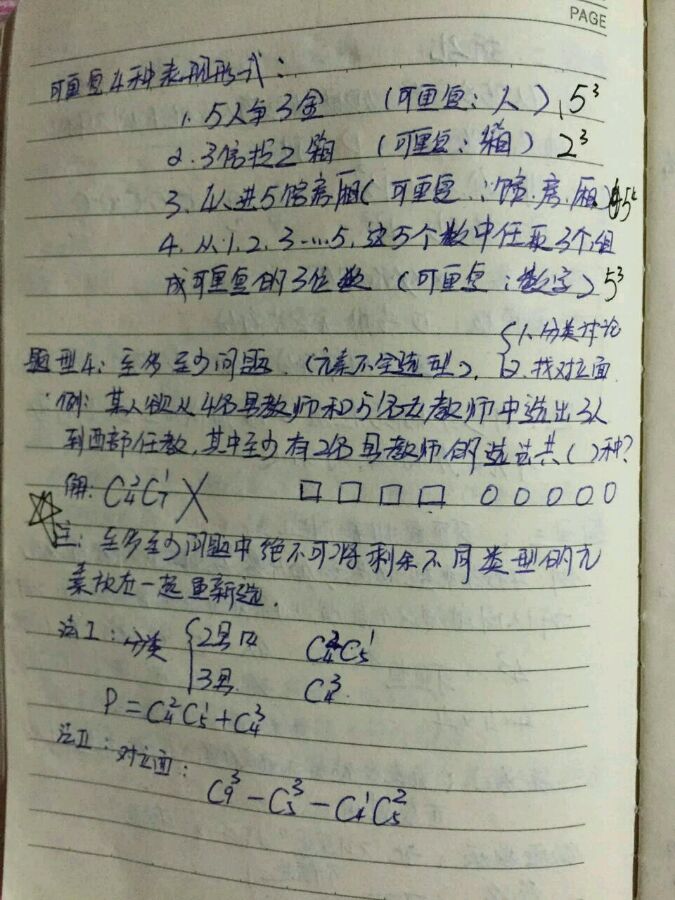 PAGE
可重复4种表现形式:
1. 5人争3金 (可重复:人)、5³
2. 3信投2箱 (可重复:箱) 2³
3. 4人进5馆房厢(可重复:馆.房.厢)5⁴
4. 从1.2.3…5.这5个数中任取3个组
成可重复的3位数 (可重复:数字) 5³
题型4: 至多至少问题.(元素不定选型). {1.分类讨论
2.找对立面
例: 某人欲从4名男教师和5名女教师中选出3人
到西部任教,其中至少有2名男教师的选法共( )种?
解: C₄²C₇¹ X □ □ □ □ ○ ○ ○ ○ ○
☆注: 至多至少问题中绝不可将剩余不同类型的元
素放在一起重新选.
法I: 分类 {2男1女 C₄²C₅¹
3男 C₄³
P=C₄²C₅¹+C₄³
法II: 对立面:
C₉³-C₅³-C₄¹C₅²